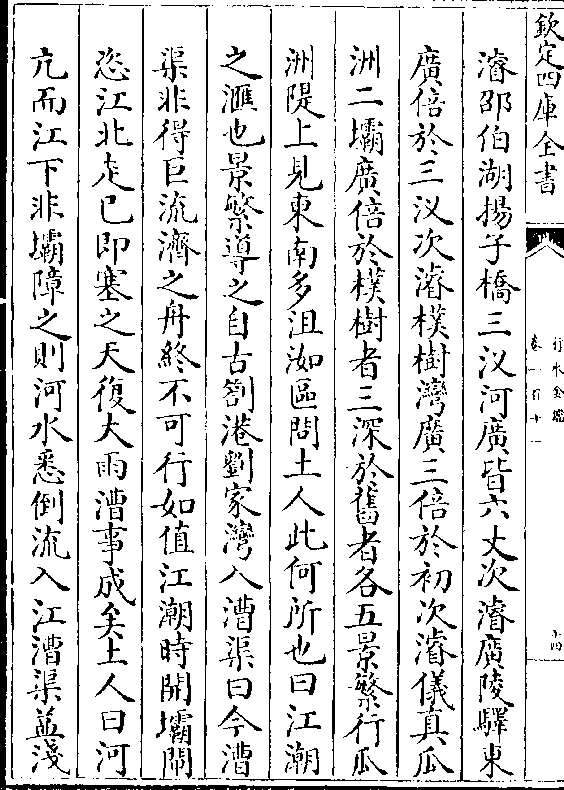 欽定四庫全書
行水金鑑
卷一百十一
十四
濬邵伯湖揚子橋三汊河廣皆六丈次濬廣陵驛東
廣倍於三汊次濬樸樹灣廣三倍於初次濬儀真瓜
洲二壩廣倍於樸樹者三深於舊者各五景繁行瓜
洲隄上見東南多沮洳區問土人此何所也曰江潮
之滙也景繁導之自古劄港劉家灣入漕渠曰今漕
渠非得巨流濟之舟終不可行如值江潮時開壩閘
恣江北走已即塞之天復大雨漕事成矣土人曰河
亢而江下非壩障之則河水悉倒流入江漕渠益淺